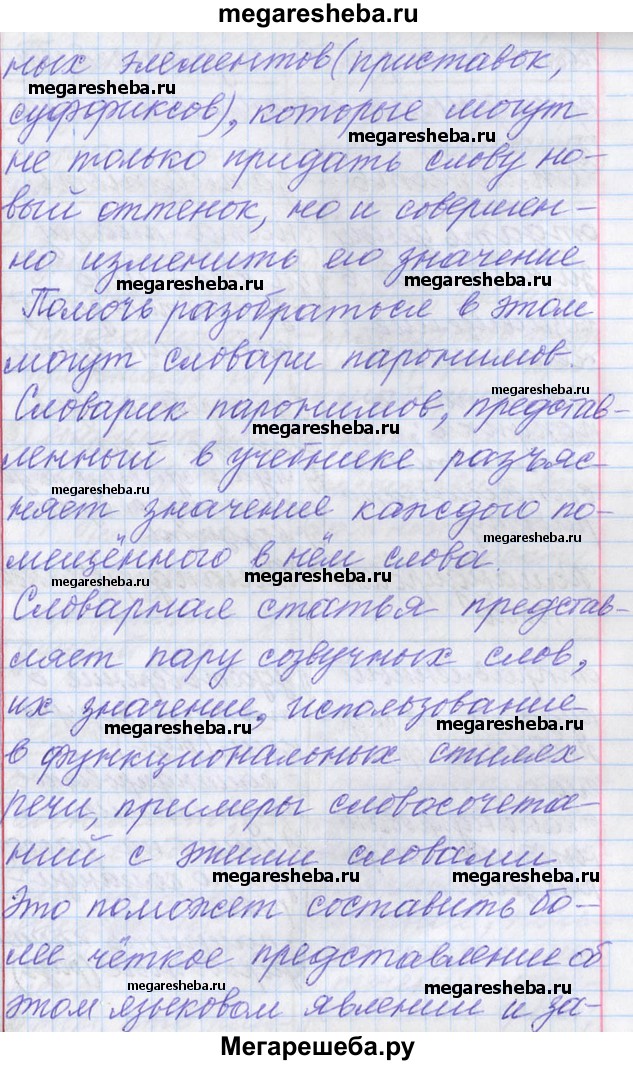 megaresheba.ru
ных элементов (приставок,
megaresheba.ru
суффиксов), которые могут
megaresheba.ru
не только придать слову но-
вый оттенок, но и совершен-
но изменить его значение
megaresheba.ru megaresheba.ru
Помочь разобраться в этом
могут словари паронимов.
megaresheba.ru
Словарик паронимов, представ-
megaresheba.ru
ленный в учебнике разъяс-
megaresheba.ru
няет значение каждого по-
мещённого в нём слова.
megaresheba.ru
megaresheba.ru megaresheba.ru
Словарная статья представ-
ляет пару созвучных слов,
их значение, использование
megaresheba.ru megaresheba.ru
в функциональных стилях
речи, примеры словосочета-
ний с этими словами
megaresheba.ru megaresheba.ru
Это поможет составить бо-
лее чёткое представление об
megaresheba.ru megaresheba.ru
этом языковом явлении и за-
Мегарешеба.ру